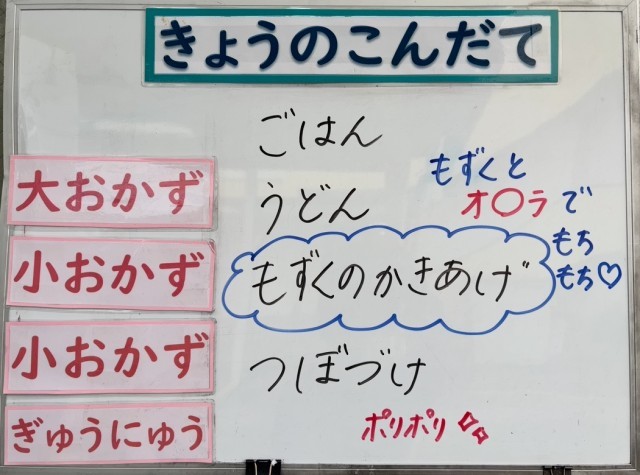 きょうのこんだて
ごはん
大おかず
うどん
もずくと
オ〇ラで
もち
もち♡
小おかず
もずくのかきあげ
小おかず
つぼづけ
ぎゅうにゅう
ポリポリ